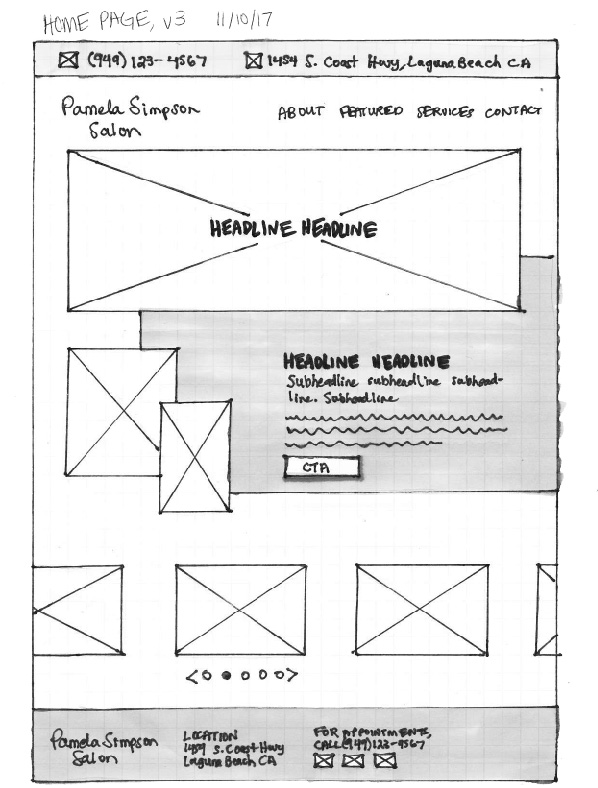 HOME PAGE, v3 11/10/17
(949) 123-4567 1454 S. Coast Hwy, Laguna Beach CA
Pamela Simpson
Salon
ABOUT FEATURED SERVICES CONTACT
HEADLINE HEADLINE
HEADLINE HEADLINE
Subheadline subheadline subhead-
line. Subheadline
CTA
Pamela Simpson
Salon
LOCATION
1454 S. Coast Hwy
Laguna Beach CA
FOR APPOINTMENTS,
CALL (949) 123-4567